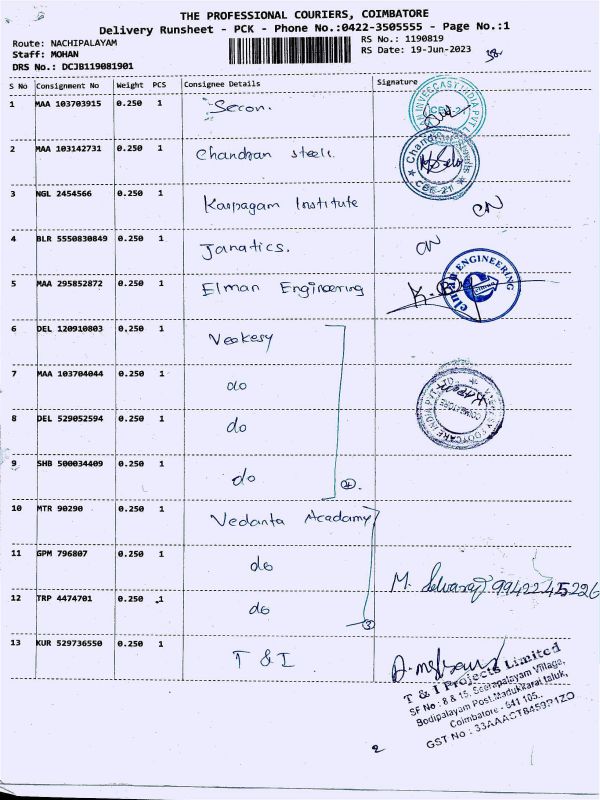 THE PROFESSIONAL COURIERS, COIMBATORE
Delivery Runsheet - PCK - Phone No.:0422-3505555 - Page No.:1
Route: NACHIPALAYAM
RS No.: 1190819
Staff: MOHAN
RS Date: 19-Jun-2023
DRS No.: DCJB119081901
S No Consignment No Weight PCS Consignee Details Signature
1 MAA 103703915 0.250 1 Secon.
2 MAA 103142731 0.250 1 Chandran steels.
3 NGL 2454566 0.250 1 Karpagam Institute CN
4 BLR 5550830849 0.250 1 Janatics. CN
5 MAA 295852872 0.250 1 Elman Engineering
6 DEL 120910803 0.250 1 Veekesy
7 MAA 103704044 0.250 1 do
8 DEL 529052594 0.250 1 do
9 SHB 500034409 0.250 1 do 4.
10 MTR 90290 0.250 1 Vedanta Acadamy
11 GPM 796807 0.250 1 do
M. Selvaraj 9942245226
12 TRP 4474701 0.250 1 do 3
13 KUR 529736550 0.250 1 T & I
T & I Projects Limited
SF No : 8 & 15, Seerapalayam Village,
Bodipalayam Post, Madukkarai taluk,
Coimbatore - 641 105.
GST No : 33AAACT8459P1ZO
2